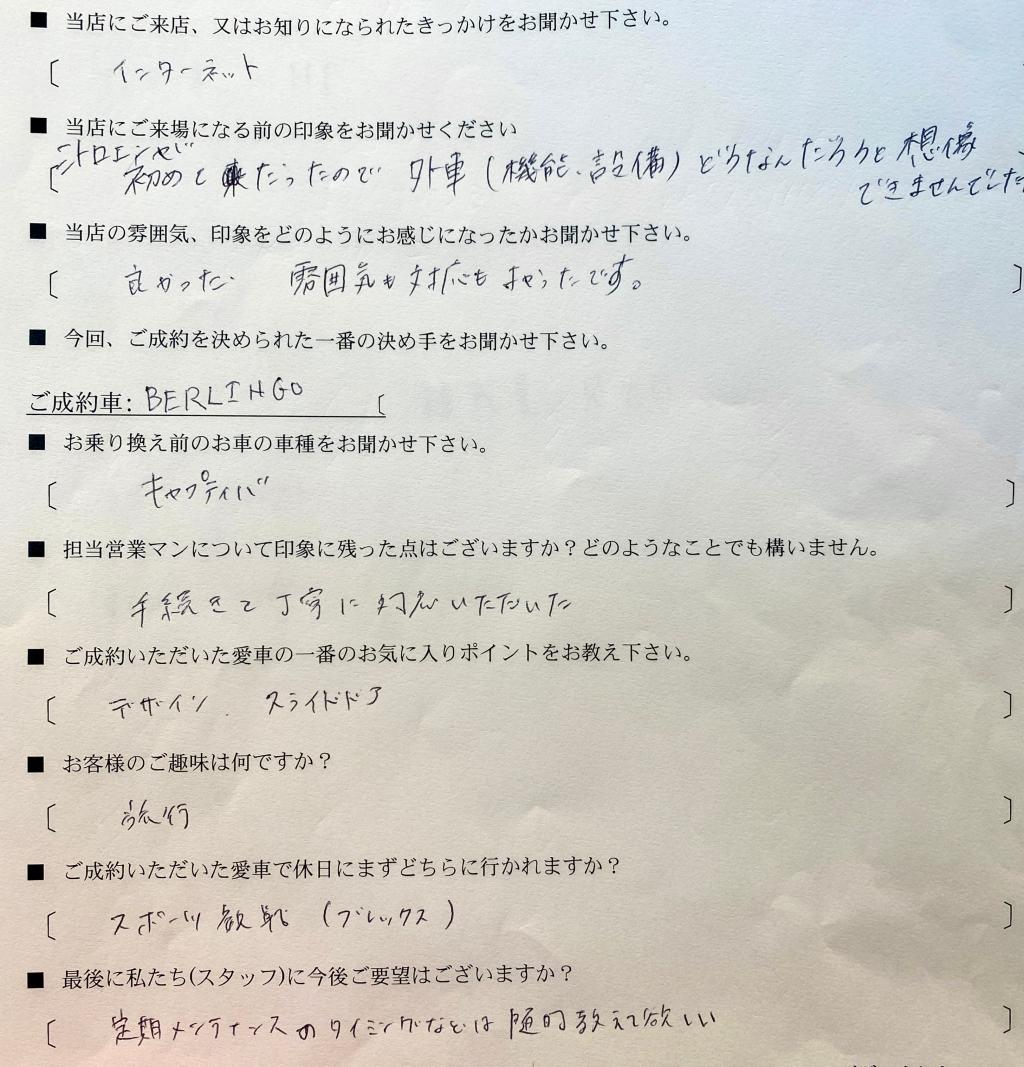 ■ 当店にご来店、又はお知りになられたきっかけをお聞かせ下さい。
〔 インターネット
■ 当店にご来場になる前の印象をお聞かせください
〔 初めて来たったので 外車(機能、設備)どうなんだろうと想像
できませんでした
■ 当店の雰囲気、印象をどのようにお感じになったかお聞かせ下さい。
〔 良かった. 雰囲気も対応もよかったです。 〕
■ 今回、ご成約を決められた一番の決め手をお聞かせ下さい。
ご成約車: BERLINGO 〔
■ お乗り換え前のお車の車種をお聞かせ下さい。
〔 キャプティバ 〕
■ 担当営業マンについて印象に残った点はございますか？どのようなことでも構いません。
〔 手続きで丁寧に対応いただいた 〕
■ ご成約いただいた愛車の一番のお気に入りポイントをお教え下さい。
〔 デザイン. スライドドア 〕
■ お客様のご趣味は何ですか？
〔 旅行 〕
■ ご成約いただいた愛車で休日にまずどちらに行かれますか？
〔 スポーツ観戦 (ブレックス) 〕
■ 最後に私たち(スタッフ)に今後ご要望はございますか？
〔 定期メンテナンスのタイミングなどは随時教えて欲しい 〕